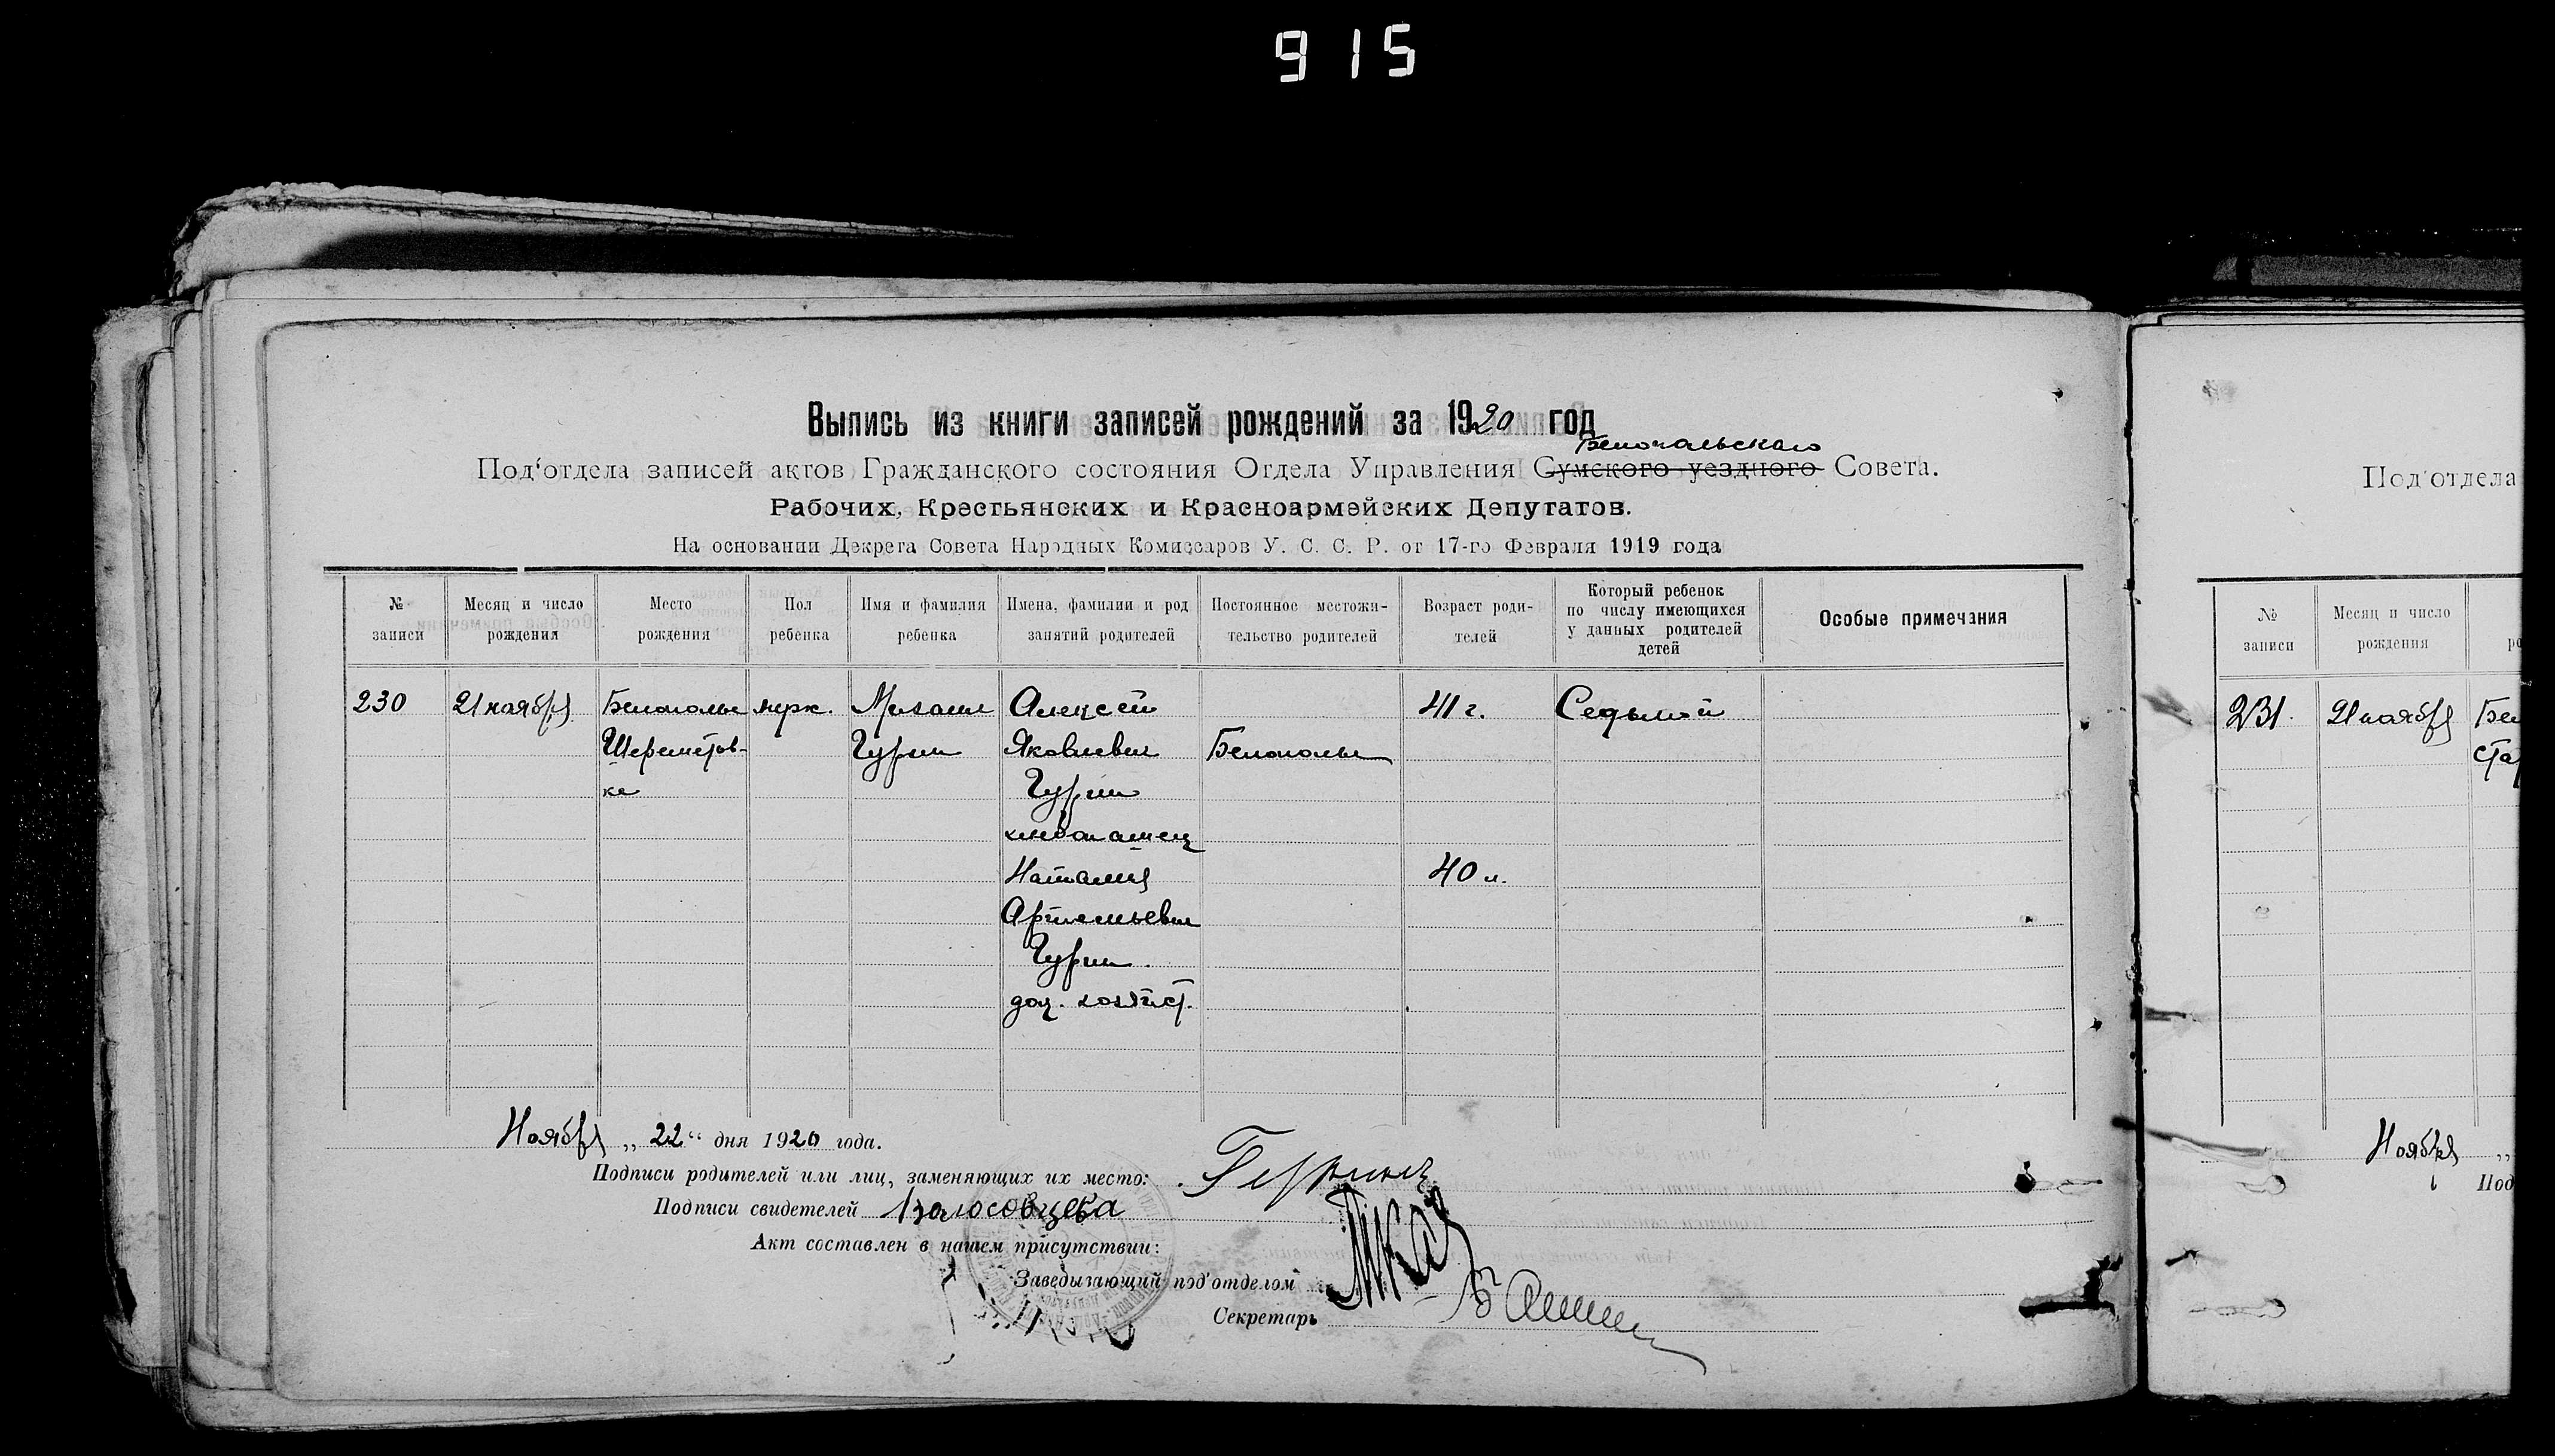 915
Выпись из книги записей рождений за 1920 год
Белопольского
Под'отдела записей актов Гражданского состояния Отдела Управления Сумского уездного Совета.
Рабочих, Крестьянских и Красноармейских Депутатов.
На основании Декрета Совета Народных Комиссаров У. С. С. Р. от 17-го Февраля 1919 года
№ записи
Месяц и число рождения
Место рождения
Пол ребенка
Имя и фамилия ребенка
Имена, фамилии и род занятий родителей
Постоянное местожительство родителей
Возраст родителей
Который ребенок по числу имеющихся у данных родителей детей
Особые примечания
230 21 ноября Белополье мужс. Михаил Алексей 41 г. Седьмой
Шереметов- Гурин Яковлевич Белополье
ке Гурин
хлебопашец
Наталия 40 л.
Артемьевна
Гурин
дом. хозяйст.
Ноября „ 22 “ дня 1920 года.
Подписи родителей или лиц, заменяющих их место:
Подписи свидетелей
Акт составлен в нашем присутствии:
Заведывающий под'отделом
Секретарь
Под'отдела
№ записи
Месяц и число рождения
231. 21 ноября
Ноября „
Под